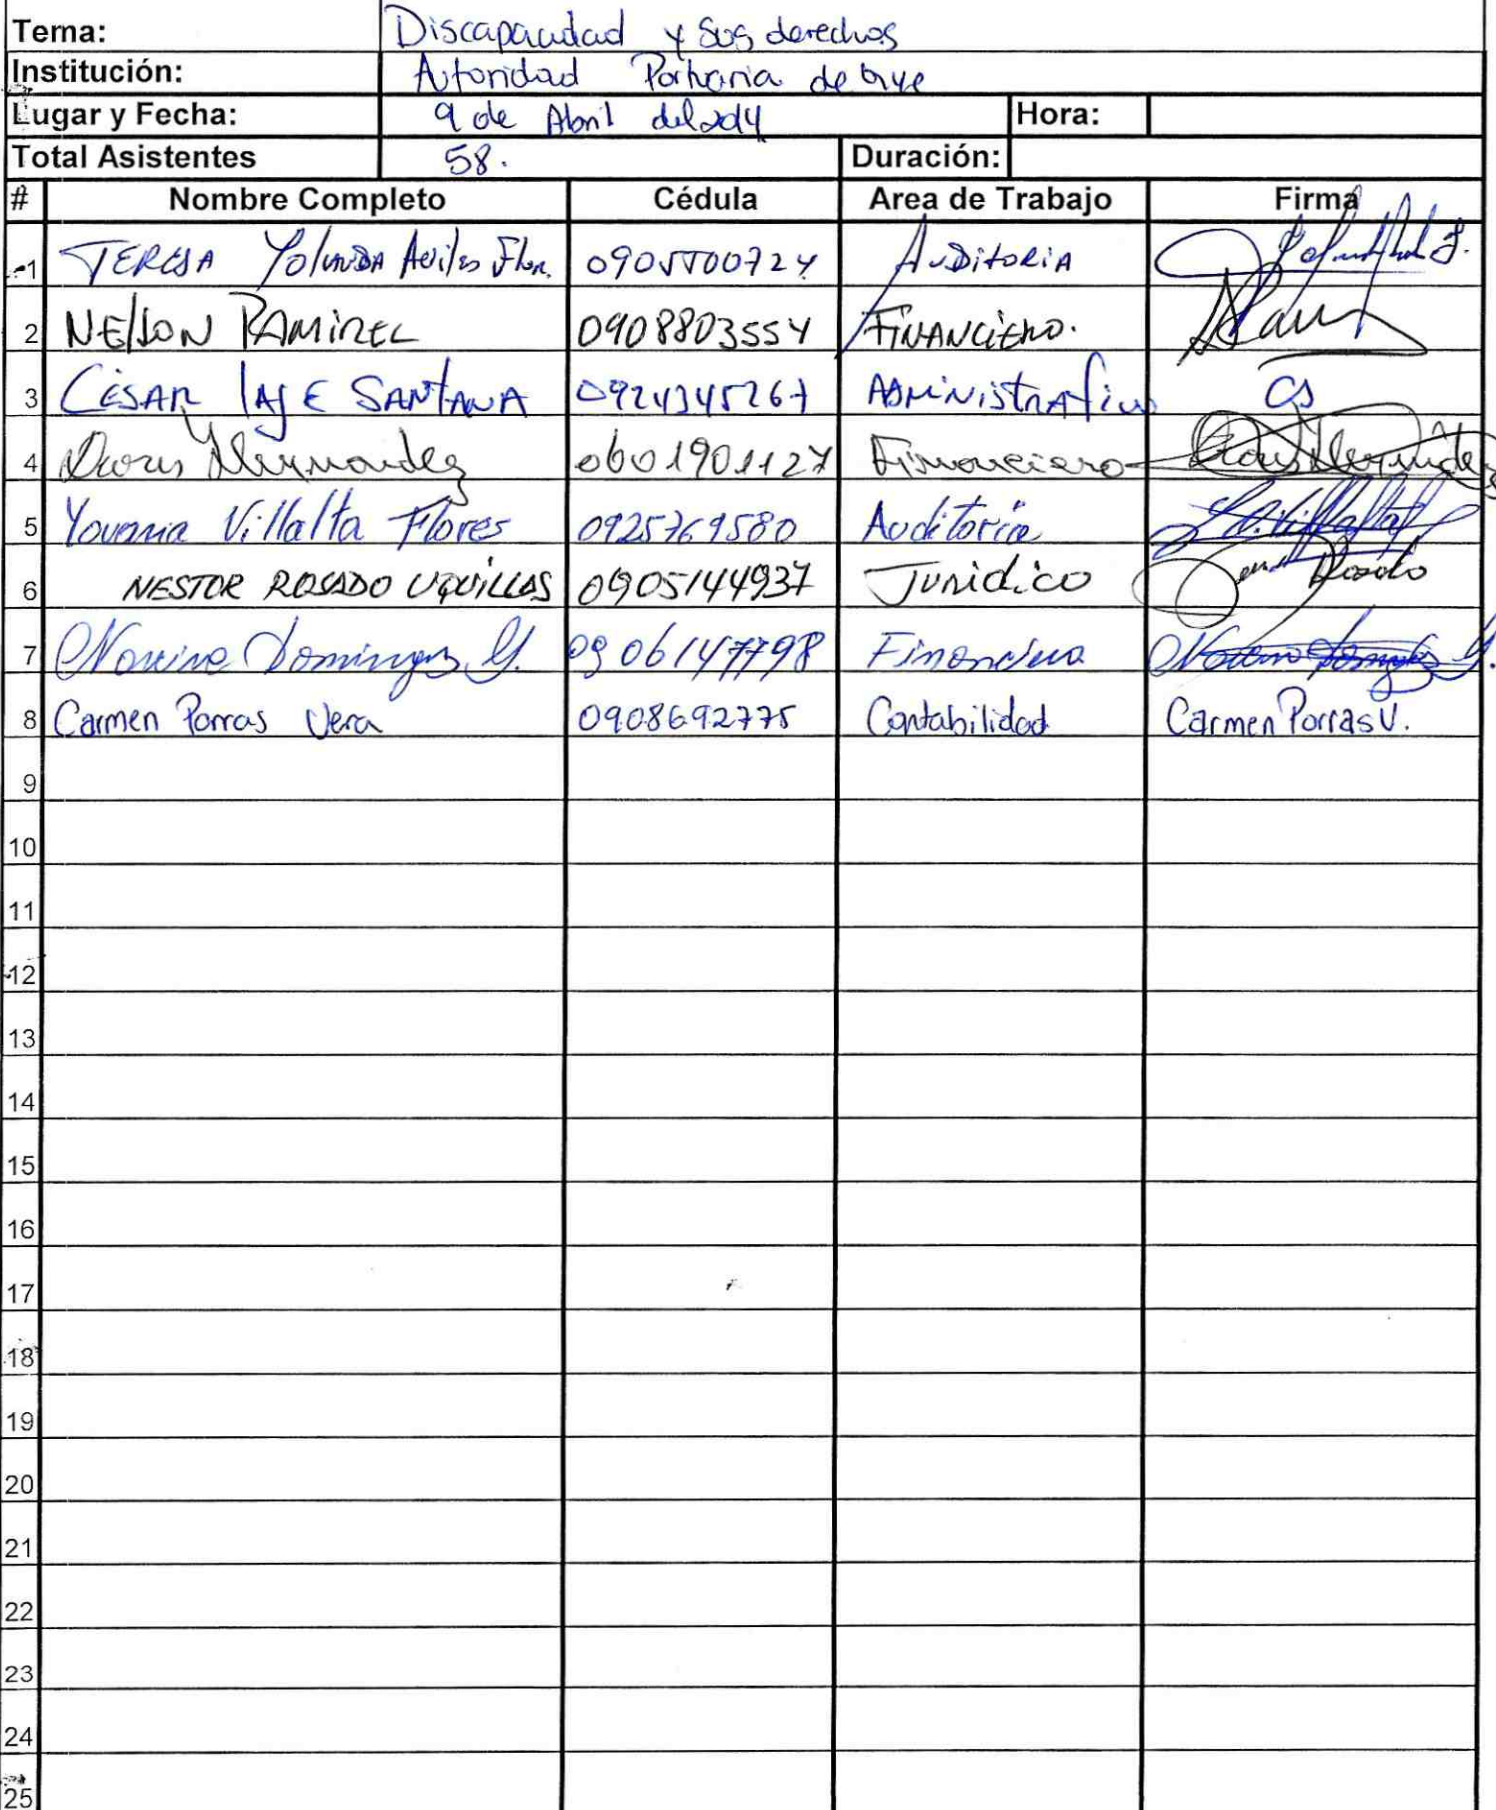 Tema: Discapacidad y sus derechos
Institución: Autoridad Portuaria de Gye
Lugar y Fecha: 9 de Abril del 2014 Hora:
Total Asistentes 58. Duración:
# Nombre Completo Cédula Area de Trabajo Firma
1 TERESA Yolanda Aviles Flor. 0905500724 AuDitoRiA
2 NElson RAMIREZ 0908803554 FiNANCiERO.
3 CESAR lAJE SANTANA 0924345267 ADMiNistRAtivo CS
4 Doris Hernandez 0601901127 Financiero Doris Hernandez
5 Yovania Villalta Flores 0925769580 Auditoria
6 NESTOR ROSADO UQUILLAS 0905144937 Juridico Rosado
7 Dominguez G. 0906147798 Financiero
8 Carmen Porras Vera 0908692775 Contabilidad Carmen Porras V.
9
10
11
12
13
14
15
16
17
18
19
20
21
22
23
24
25